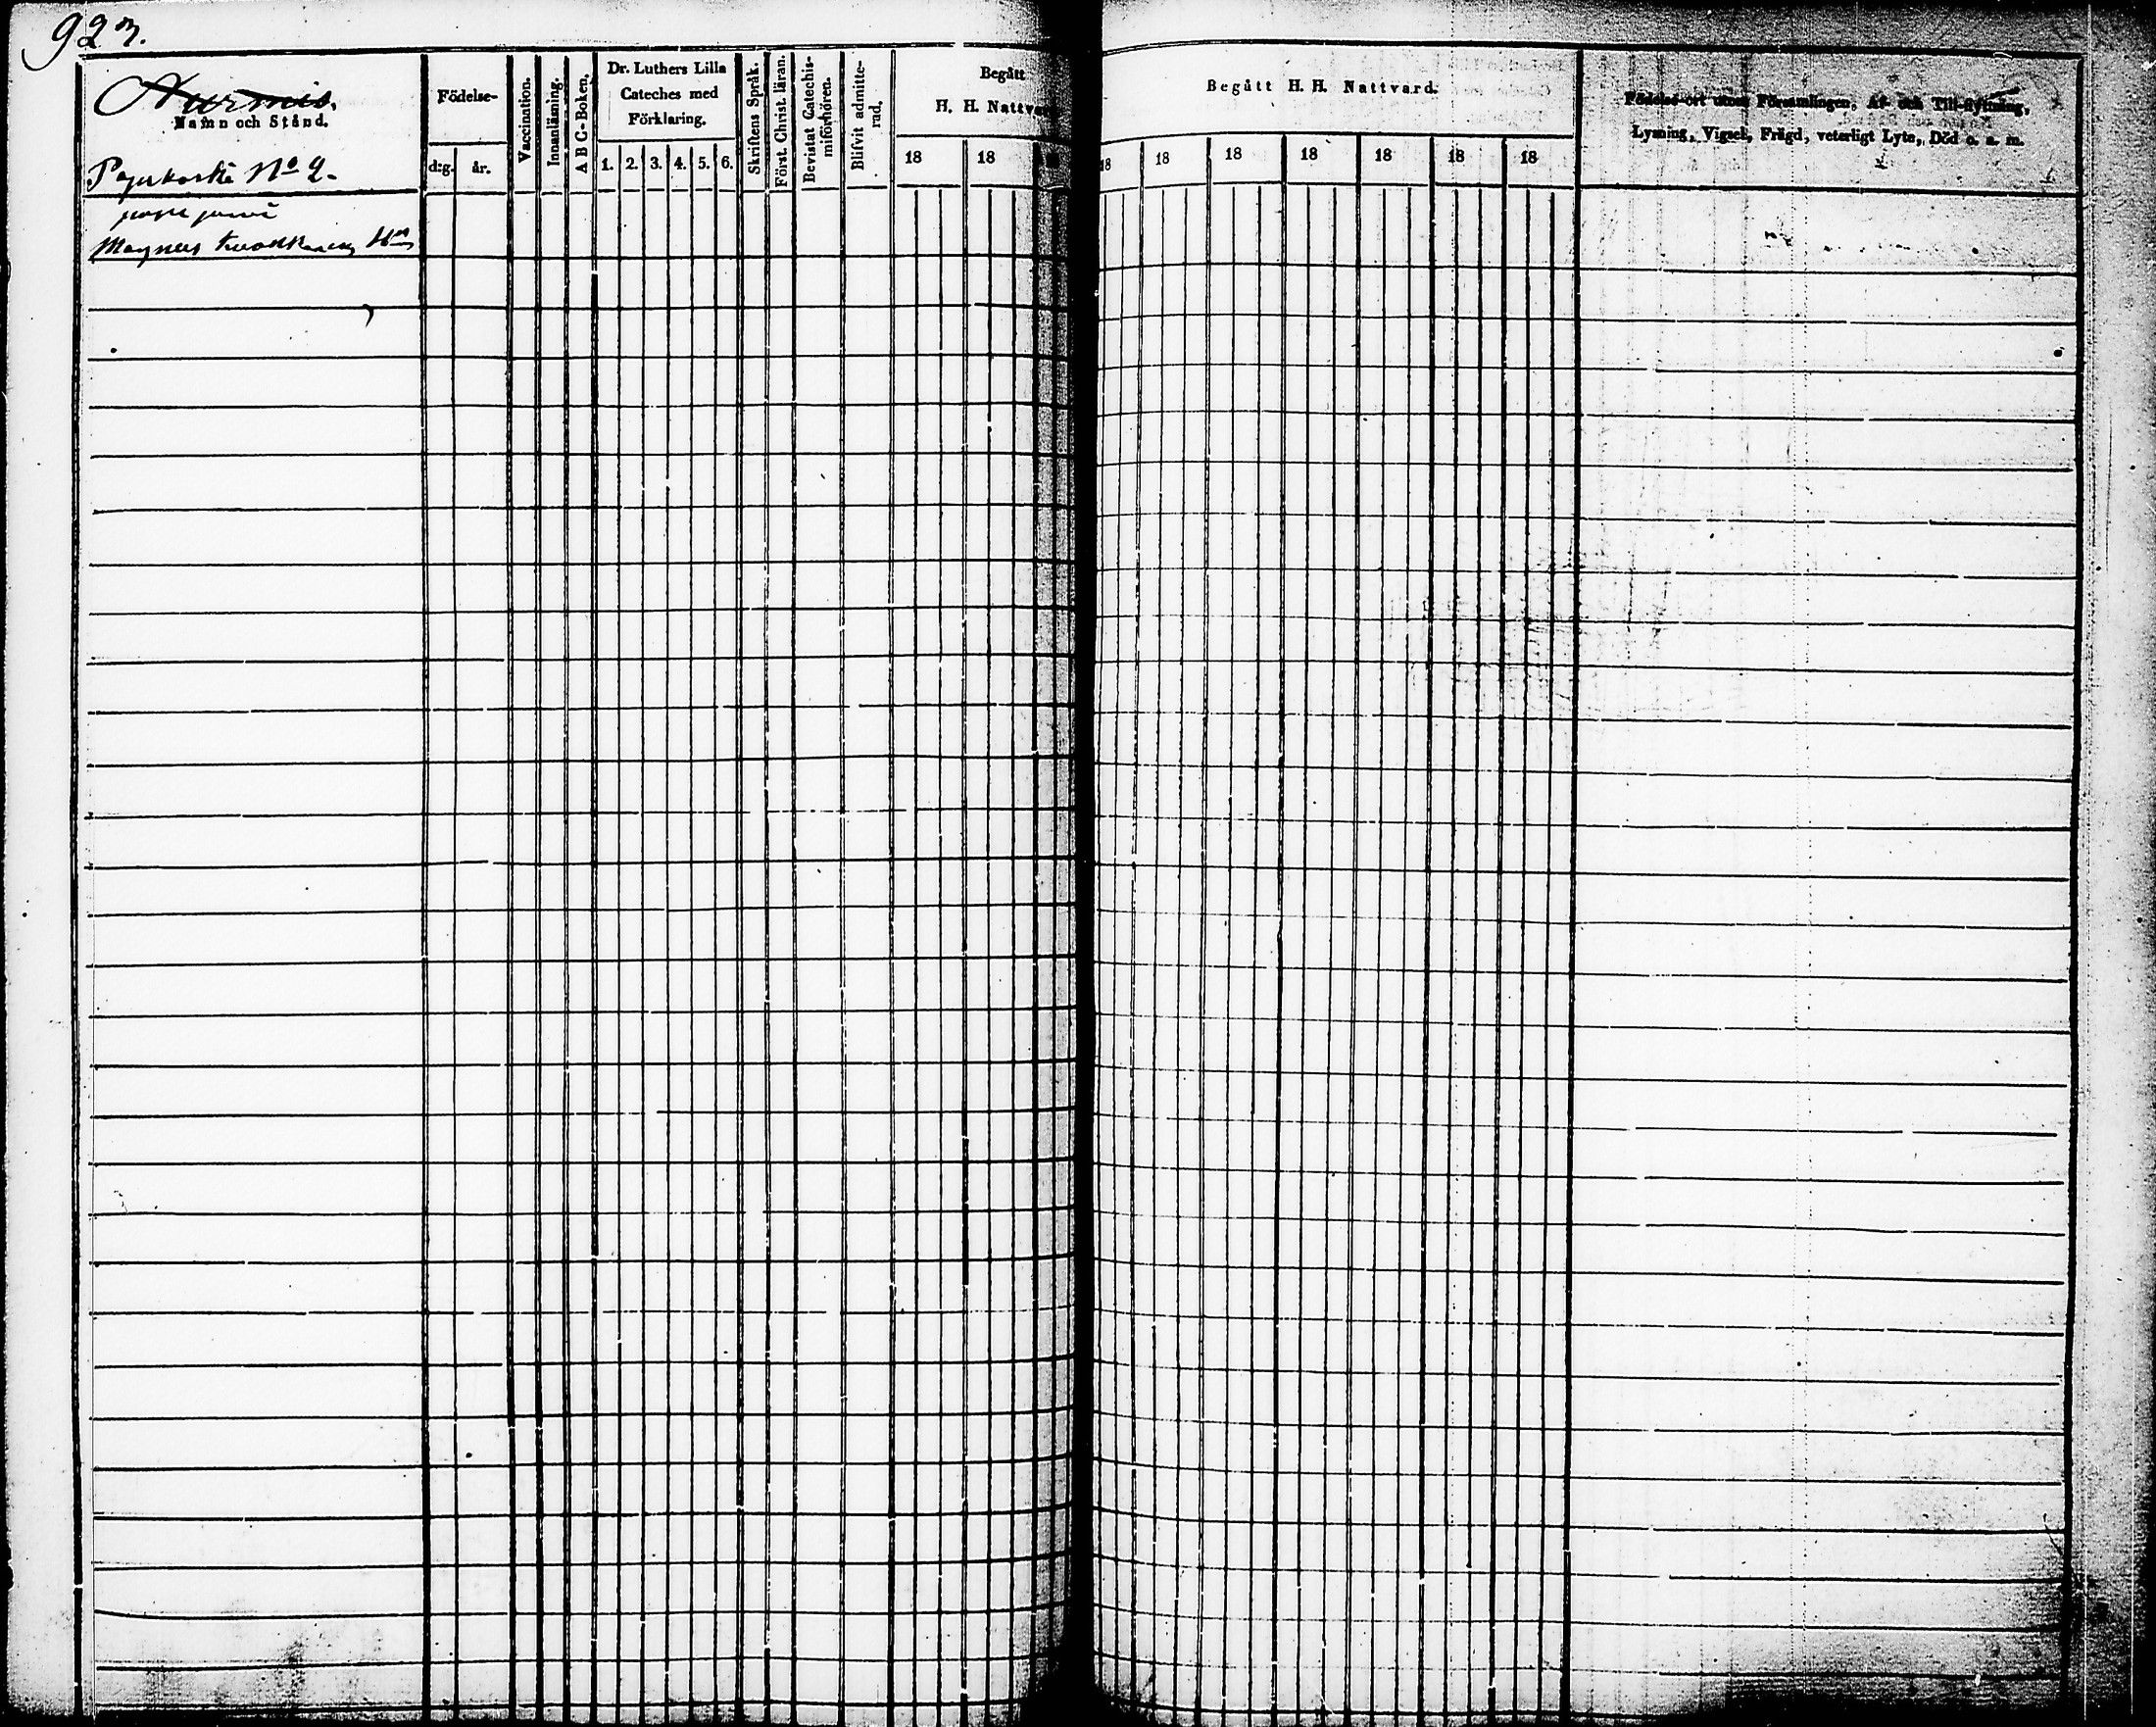 923.
Nurmis.
Namn och Stånd.
Pajukoski No 2.
Födelse-
d:g. år.
Vaccination.
Innanläsning.
A B C-Boken.
Dr. Luthers Lilla
Cateches med
Förklaring.
1. 2. 3. 4. 5. 6.
Skriftens Språk.
Först. Christ. läran.
Bevistat Catechis-
miförhören.
Blifvit admitte-
rad.
Begått
H. H. Nattvard
18 18
Begått H. H. Nattvard.
18 18 18 18 18 18 18
Födelse-ort utom Församlingen, Af- och Till-flyttning,
Lysning, Vigsel, Frägd, veterligt Lyte, Död o. a. m.
Magnus